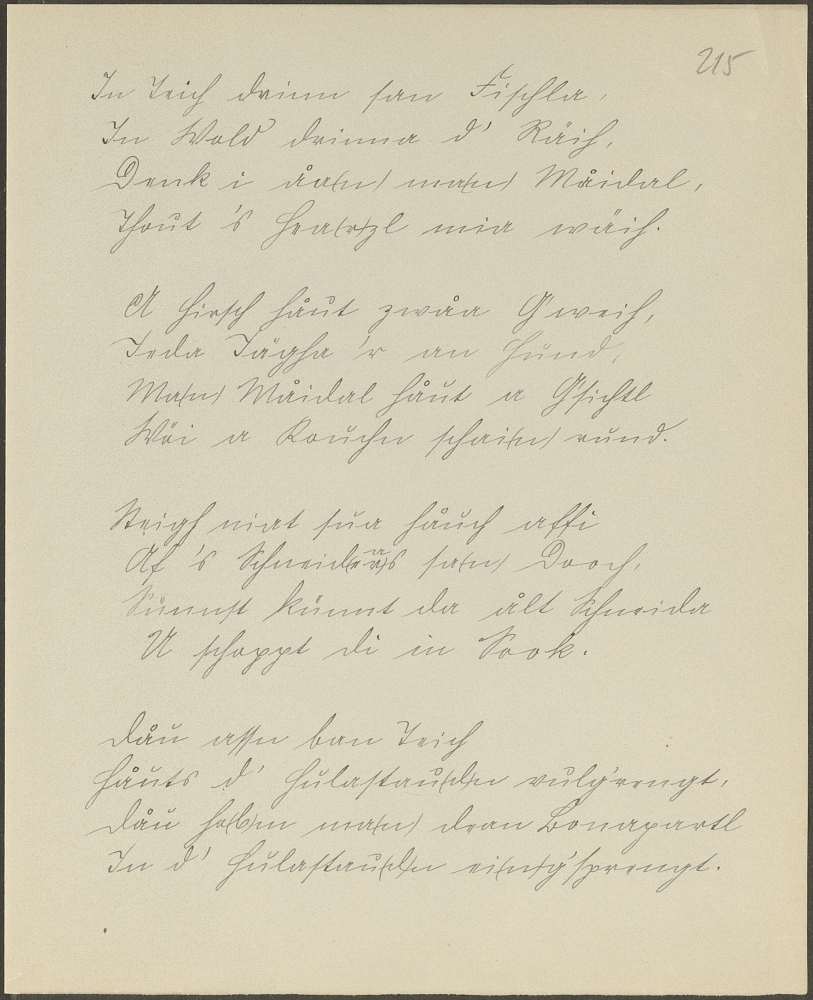 215
In Teich drinn san Fischla,
In Wold drinna d' Räih,
Denk i åa(n) ma(n) Måidal,
Thout 's Hea(r)zl mia wäih.
A Hirsch håut zwåa G'weih,
Jeda Jägha 'r an Hund,
Ma(n) Måidal håut a G'sichtl
Wöi a Kouchn schai(n) rund.
Steigh niat sua håuch affi
Af 's Schneid(e)as sa(n) Dooch,
Sünnst künnt da ålt Schneida
U schoppt di in Sook.
Dåu assn ban Teich
Håuts d' Hulastau(d)n vulg'rengt,
Dåu ho(b)m ma(n) dean Bonapartl
In d' Hulastau(d)n ei(n)g'sprengt.